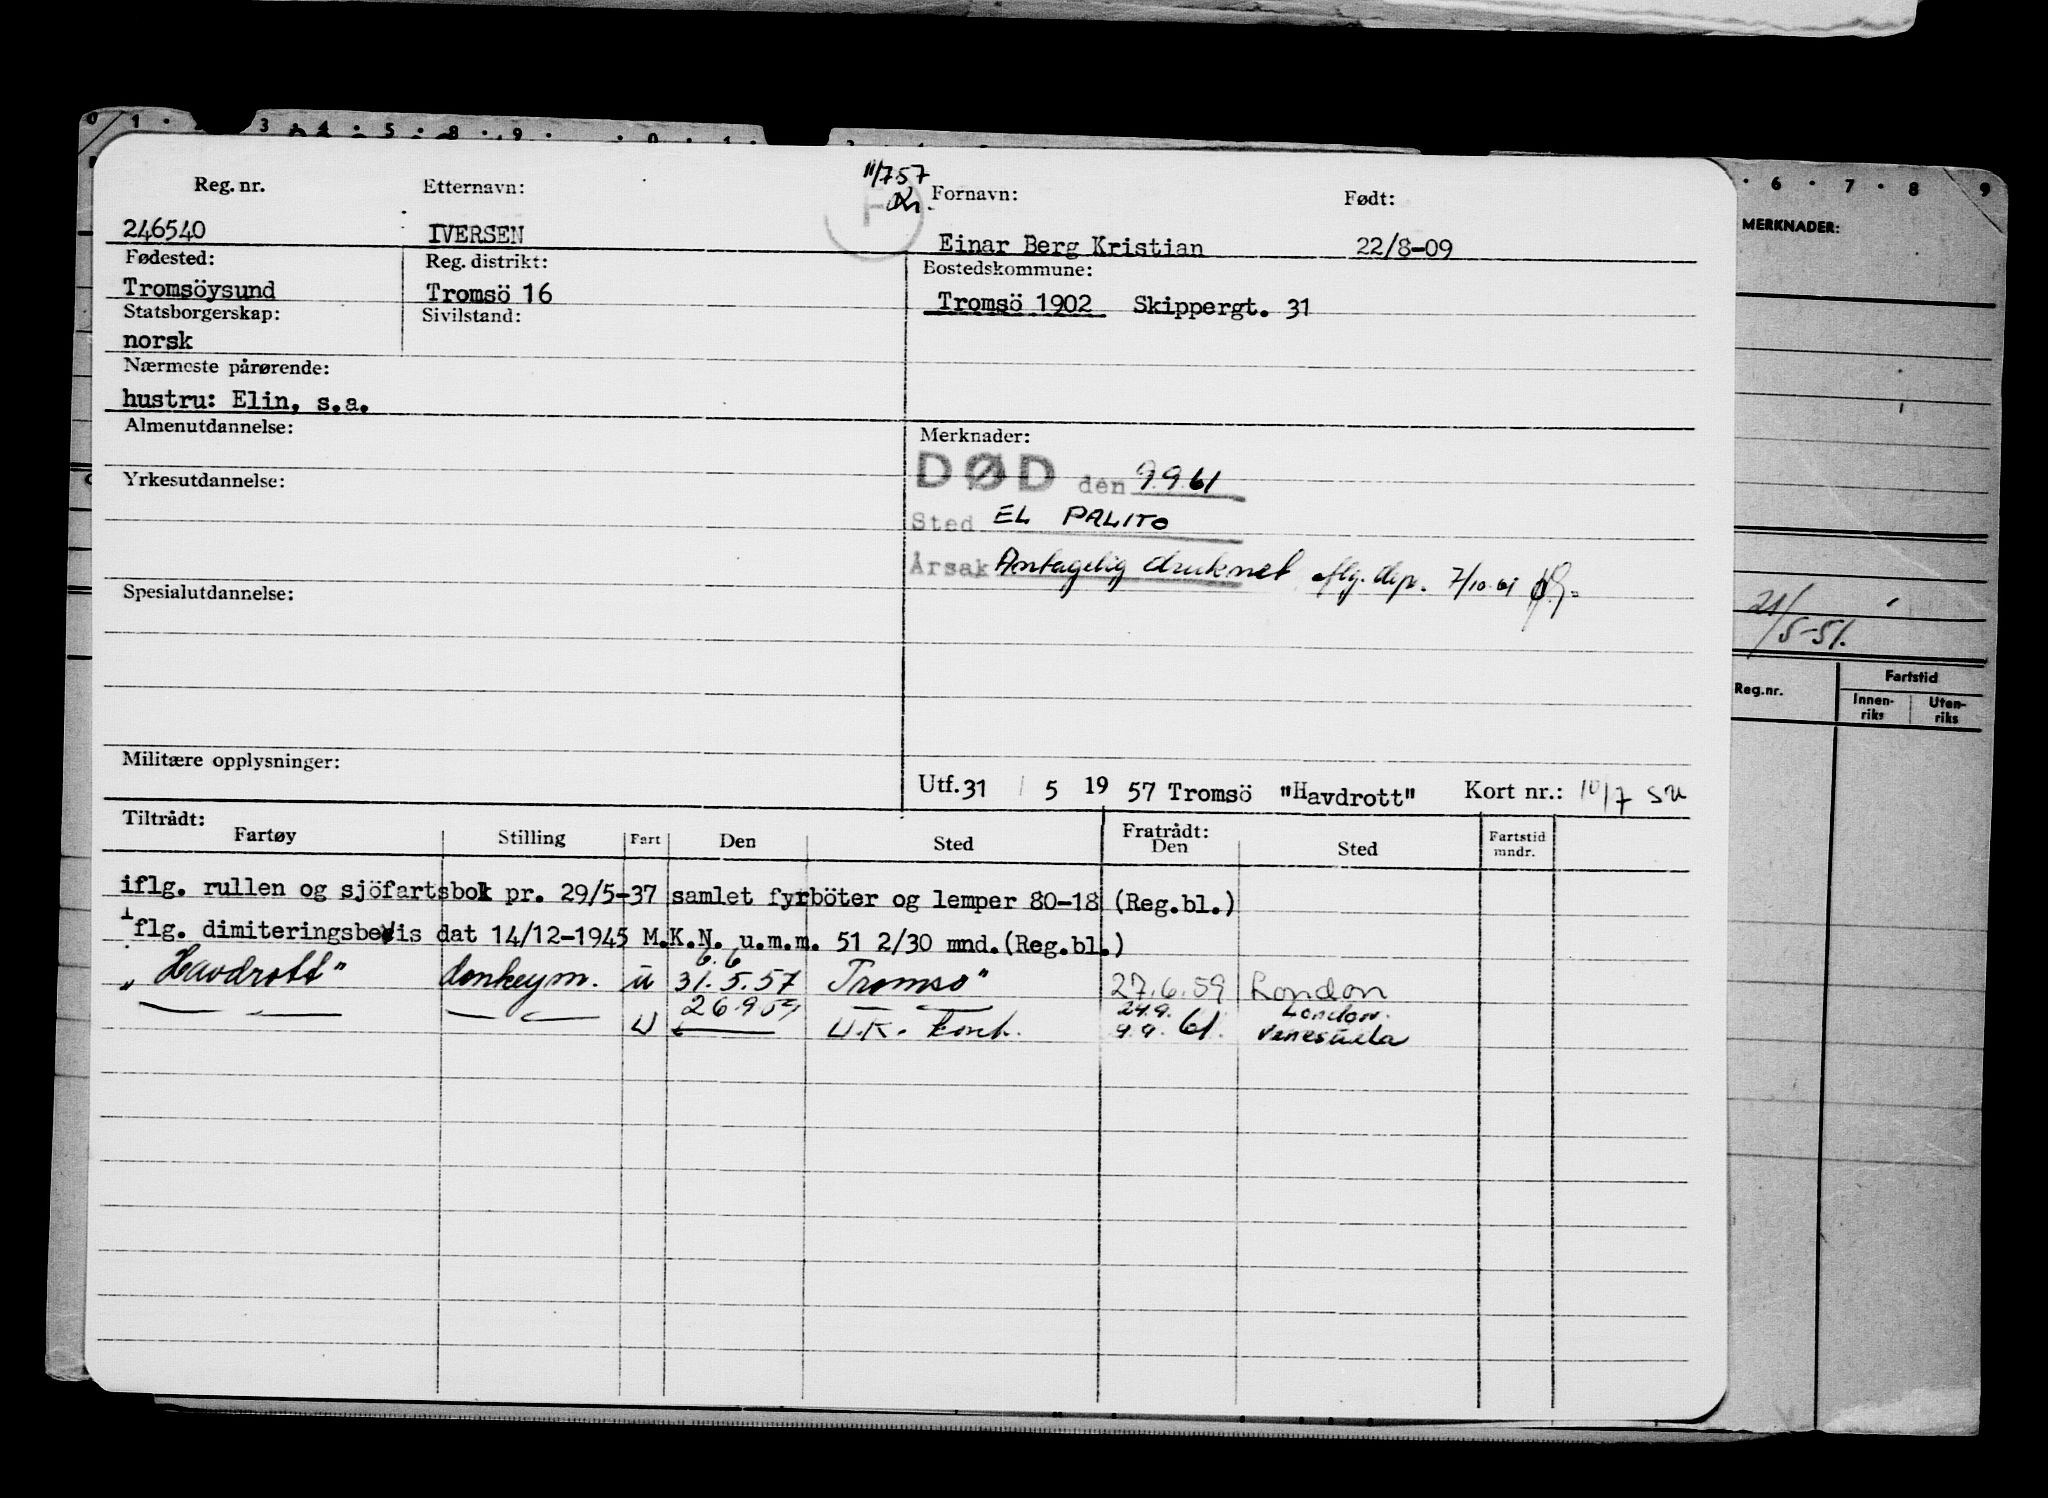 0 1 3 4 5 8 9 0 1
6 7 8 9
11/7 57
Reg. nr. Etternavn: Fornavn: Født:
246540 IVERSEN Einar Berg Kristian 22/8-09
Fødested: Reg. distrikt: Bostedskommune:
Tromsöysund Tromsö 16 Tromsö 1902 Skippergt. 31
Statsborgerskap: Sivilstand:
norsk
Nærmeste pårørende:
hustru: Elin, s.a.
Almenutdannelse: Merknader:
DØD den 9.9.61
Yrkesutdannelse:
Sted EL PALITO
Årsak Antagelig druknet iflg. dep. 7/10.61
Spesialutdannelse:
Militære opplysninger:
Utf. 31 / 5 19 57 Tromsö "Havdrott" Kort nr.: 10/7 SU
Tiltrådt: Fratrådt:
Fartøy Stilling Fart Den Sted Den Sted Fartstid mndr.
iflg. rullen og sjöfartsbok pr. 29/5-37 samlet fyrböter og lemper 80-18 (Reg.bl.)
iflg. dimiteringsbevis dat 14/12-1945 M.K.N. u.m.m. 51 2/30 mnd.(Reg.bl.)
6.6
"Havdrott" donkeym. u 31.5.57 Tromsø" 27.6.59 London
26.9.59 29.9. London.
U U.K. kont. 9.9.61. Venesuela
MERKNADER:
21/5-51.
Reg.nr. Fartstid
Innen-riks Uten-riks